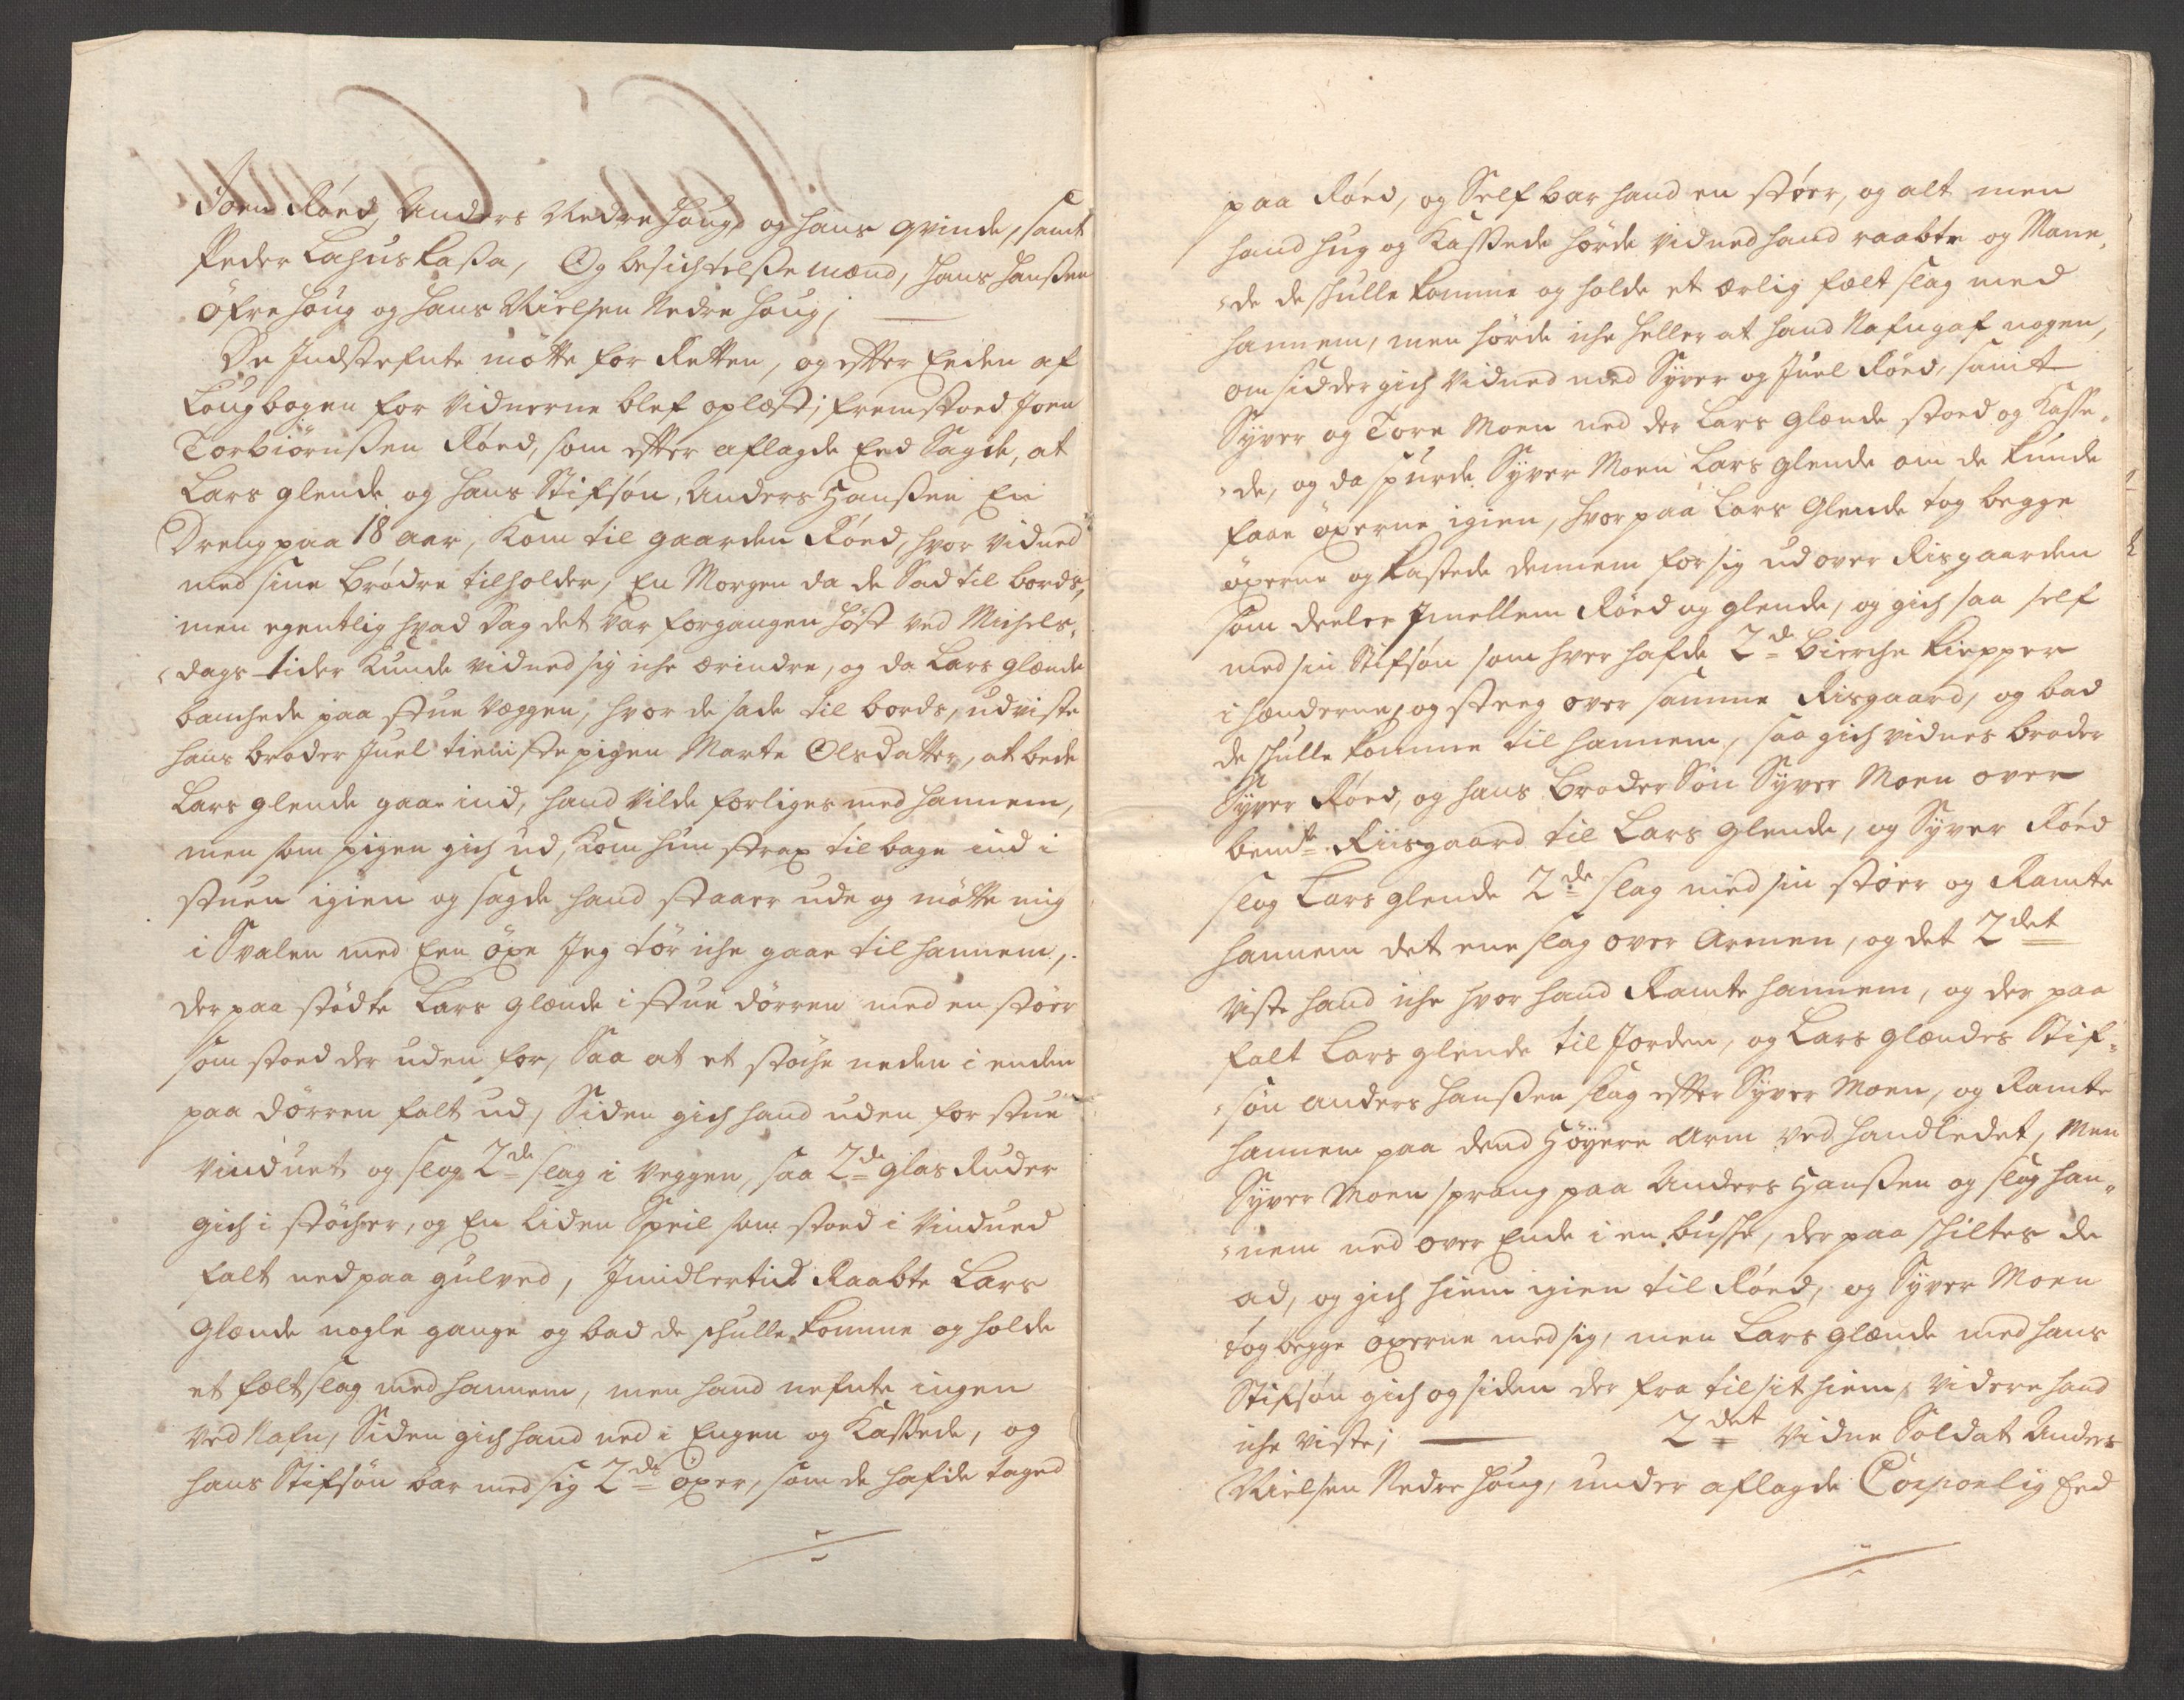 Joen Röed, Anders Nedre Houg og hans qvinde, samt
Peder Lahuskassa, Og besichtelsse mænd, Hans Hanssen
Öfre Houg og Hans Nielsen Nedre Houg;
De Indstefnte mötte for Retten, og efter Eeden af
Lougbogen for Vidnerne blef oplæst; fremstoed Joen
Torbiörnssen Röed, som efter aflagde Eed Sagde, at
Lars glende og hans Stifsön, Anders Hanssen En
Dreng paa 18 aar, Kom til gaarden Röed, hvor vidned
med sine brödre tilholder, En Morgen da de Sad til bords,
men egentlig hvad Dag det var forgangen höst ved Michels-
dags tider Kunde vidned sig iche ærindre, og da Lars glænde
banchede paa stue Væggen, hvor de sade til bords, udviste
hans broder Juel tieniste pigen Marte Olsdatter, at bede
Lars glende gaae ind, hand vilde forliges med hannem,
men som pigen gich ud, Kom hun strax tilbage ind i
stuen igien og sagde hand staaer ude og mötte mig
i Svalen med Een öxe Jeg tör iche gaae til hannem,
der paa stödte Lars glænde i stue dörren med en stöer
som stoed der uden for, Saa at et stöche neden i enden
paa dörren falt ud, Siden gich hand uden for stue
vinduet og slog 2de slag i veggen, saa 2de glas Ruder
gich i stöcher, og En liden Speil som stoed i Vindued
falt ned paa gulved, Imidlertid Raabte Lars
Glænde nogle gange og bad de schulle komme og holde
et fæltslag med hannem, men hand nefnte ingen
ved Nafn, Siden gich hand ned i Engen og Kastede, og
hans Stifsön bar med sig 2de öxer, som de hafde taged
paa Röed, og Self bar hand en stöer, og alt men
hand hug og Kastede hörde vidned hand raabte og Mane-
de de schulle komme og holde et ærlig fælt slag med
hannem, men hörde iche heller at hand Nafngaf nogen,
omsidder gich Vidned med Syver og Juel Röed, samt
Syver og Tore Moen ned der Lars glænde stoed og Kaste-
de, og da spurde Syver Moen Lars glende om de kunde
faae öxerne igien, hvor paa Lars Glende tog begge
öxerne og kastede dennem for sig ud over Risgaarden
som deeler Imellem Röed og glende, og gich saa self
med sin Stifsön som hver hafde 2de bierche kiepper
i hænderne, og steeg over samme Risgaard, og bad
de schulle komme til hannem, saa gich vidnes broder
Syver Röed, og hans Broder Sön Syver Moen over
bemte Riisgaard til Lars glende, og Syver Röed
slog Lars glende 2de slag med sin stöer og Ramte
hannem det ene slag over Armen, og det 2det
viste hand iche hvor hand Ramte hannem, og der paa
falt Lars glende til Jorden, og Lars glændes Stif-
sön Anders Hanssen slog efter Syver Moen, og Ramte
hannem paa dend Höyere Arm ved handledet, Men
Syver Moen sprang paa Anders Hanssen og slog han-
nem ned over Ende i en buske, der paa schiltes de
ad, og gich hiem igien til Röed, og Syver Moen
tog begge öxerne med sig, men Lars glænde med hans
Stifsön gich og siden der fra til sit hiem, videre hand
iche viste; 2det Vidne Soldat Anders
Nielsen Nedre Houg, under aflagde Corporlig Eed